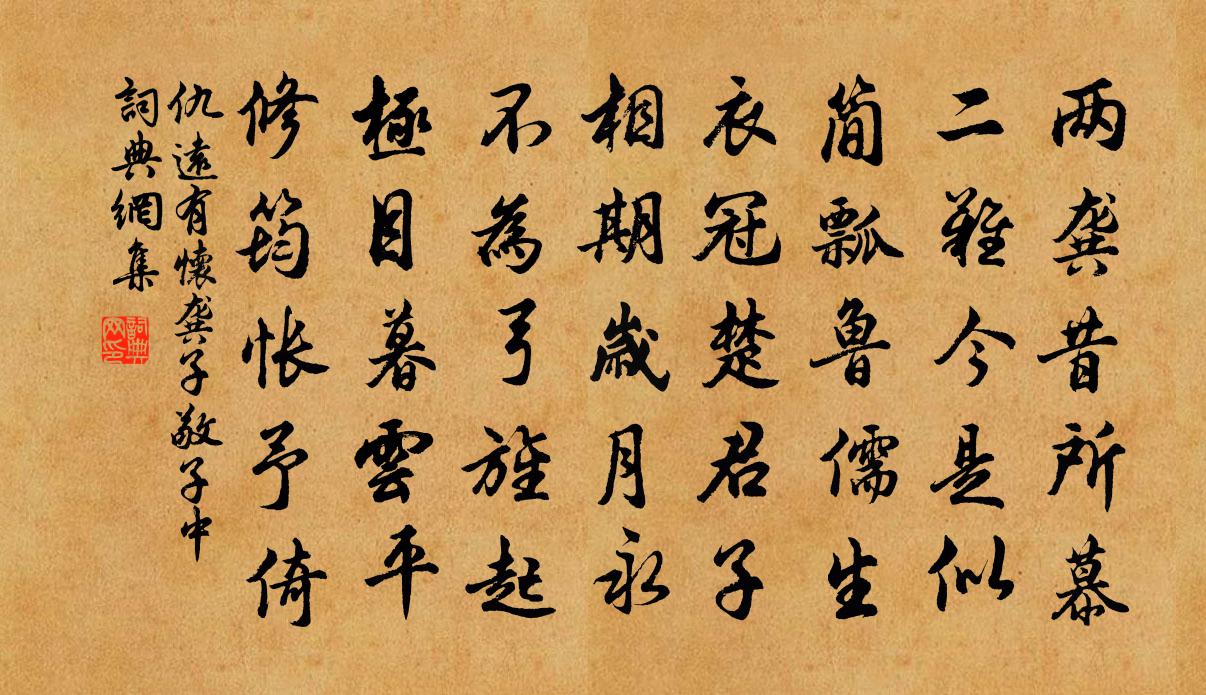 两龚昔所慕
二难今是似
简瓢鲁儒生
衣冠楚君子
相期岁月永
不为弓旌起
極目暮雲平
修筠怅予倚
仇遠有懷龚子敬子中
詞典網集
詞典网印